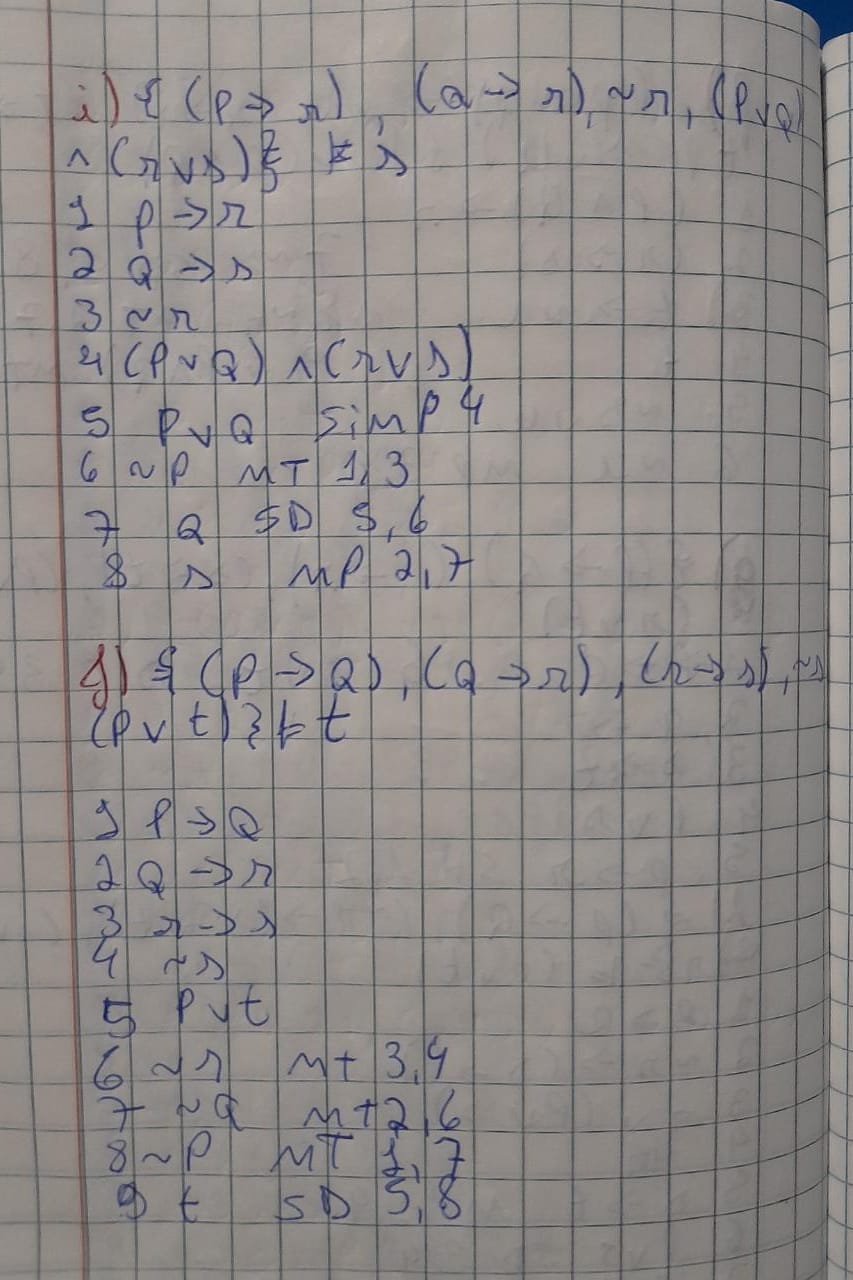 i) { (P → r), (Q → r), ~r, (P v Q)
∧ (r v s) } ⊨ s
1 P → r
2 Q → s
3 ~r
4 (P v Q) ∧ (r v s)
5 P v Q SimP 4
6 ~P MT 1,3
7 Q SD 5,6
8 s MP 2,7
j) { (P → Q), (Q → r), (r → s), ~s
(P v t) } ⊨ t
1 P → Q
2 Q → r
3 r → s
4 ~s
5 P v t
6 ~r Mt 3,4
7 ~Q Mt 2,6
8 ~P MT 1,7
9 t SD 5,8